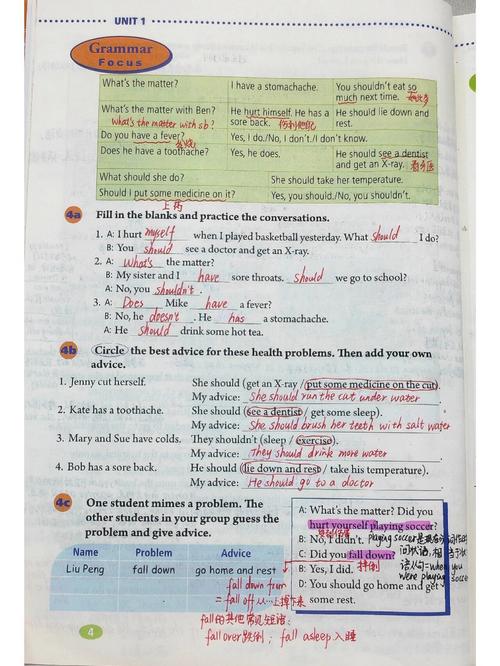 UNIT 1
Grammar
Focus
What's the matter? I have a stomachache. You shouldn't eat so
much next time.
What's the matter with Ben? He hurt himself. He has a He should lie down and
What's the matter with sb? sore back. rest.
Do you have a fever? Yes, I do./No, I don't./I don't know.
发烧
Does he have a toothache? Yes, he does. He should see a dentist
and get an X-ray. 看牙医
What should she do? She should take her temperature.
Should I put some medicine on it? Yes, you should./No, you shouldn't.
上药
4a Fill in the blanks and practice the conversations.
1. A: I hurt myself when I played basketball yesterday. What should I do?
B: You should see a doctor and get an X-ray.
2. A: What's the matter?
B: My sister and I have sore throats. should we go to school?
A: No, you shouldn't.
3. A: Does Mike have a fever?
B: No, he doesn't. He has a stomachache.
A: He should drink some hot tea.
4b Circle the best advice for these health problems. Then add your own
advice.
1. Jenny cut herself. She should (get an X-ray / put some medicine on the cut).
My advice: She should run the cut under water.
2. Kate has a toothache. She should (see a dentist / get some sleep).
My advice: She should brush her teeth with salt water
3. Mary and Sue have colds. They shouldn't (sleep / exercise).
My advice: They should drink more water
4. Bob has a sore back. He should (lie down and rest / take his temperature).
My advice: He should go to a doctor
4c One student mimes a problem. The
other students in your group guess the
problem and give advice.
Name Problem Advice
Liu Peng fall down go home and rest
A: What's the matter? Did you
hurt yourself playing soccer?
B: No, I didn't.
C: Did you fall down?
B: Yes, I did. 摔倒
D: You should go home and get
some rest.
playing soccer
=when you
were playing soccer
fall down from
= fall off 从…上掉下来
fall的其他常见短语:
fall over 跌倒; fall asleep 入睡
4